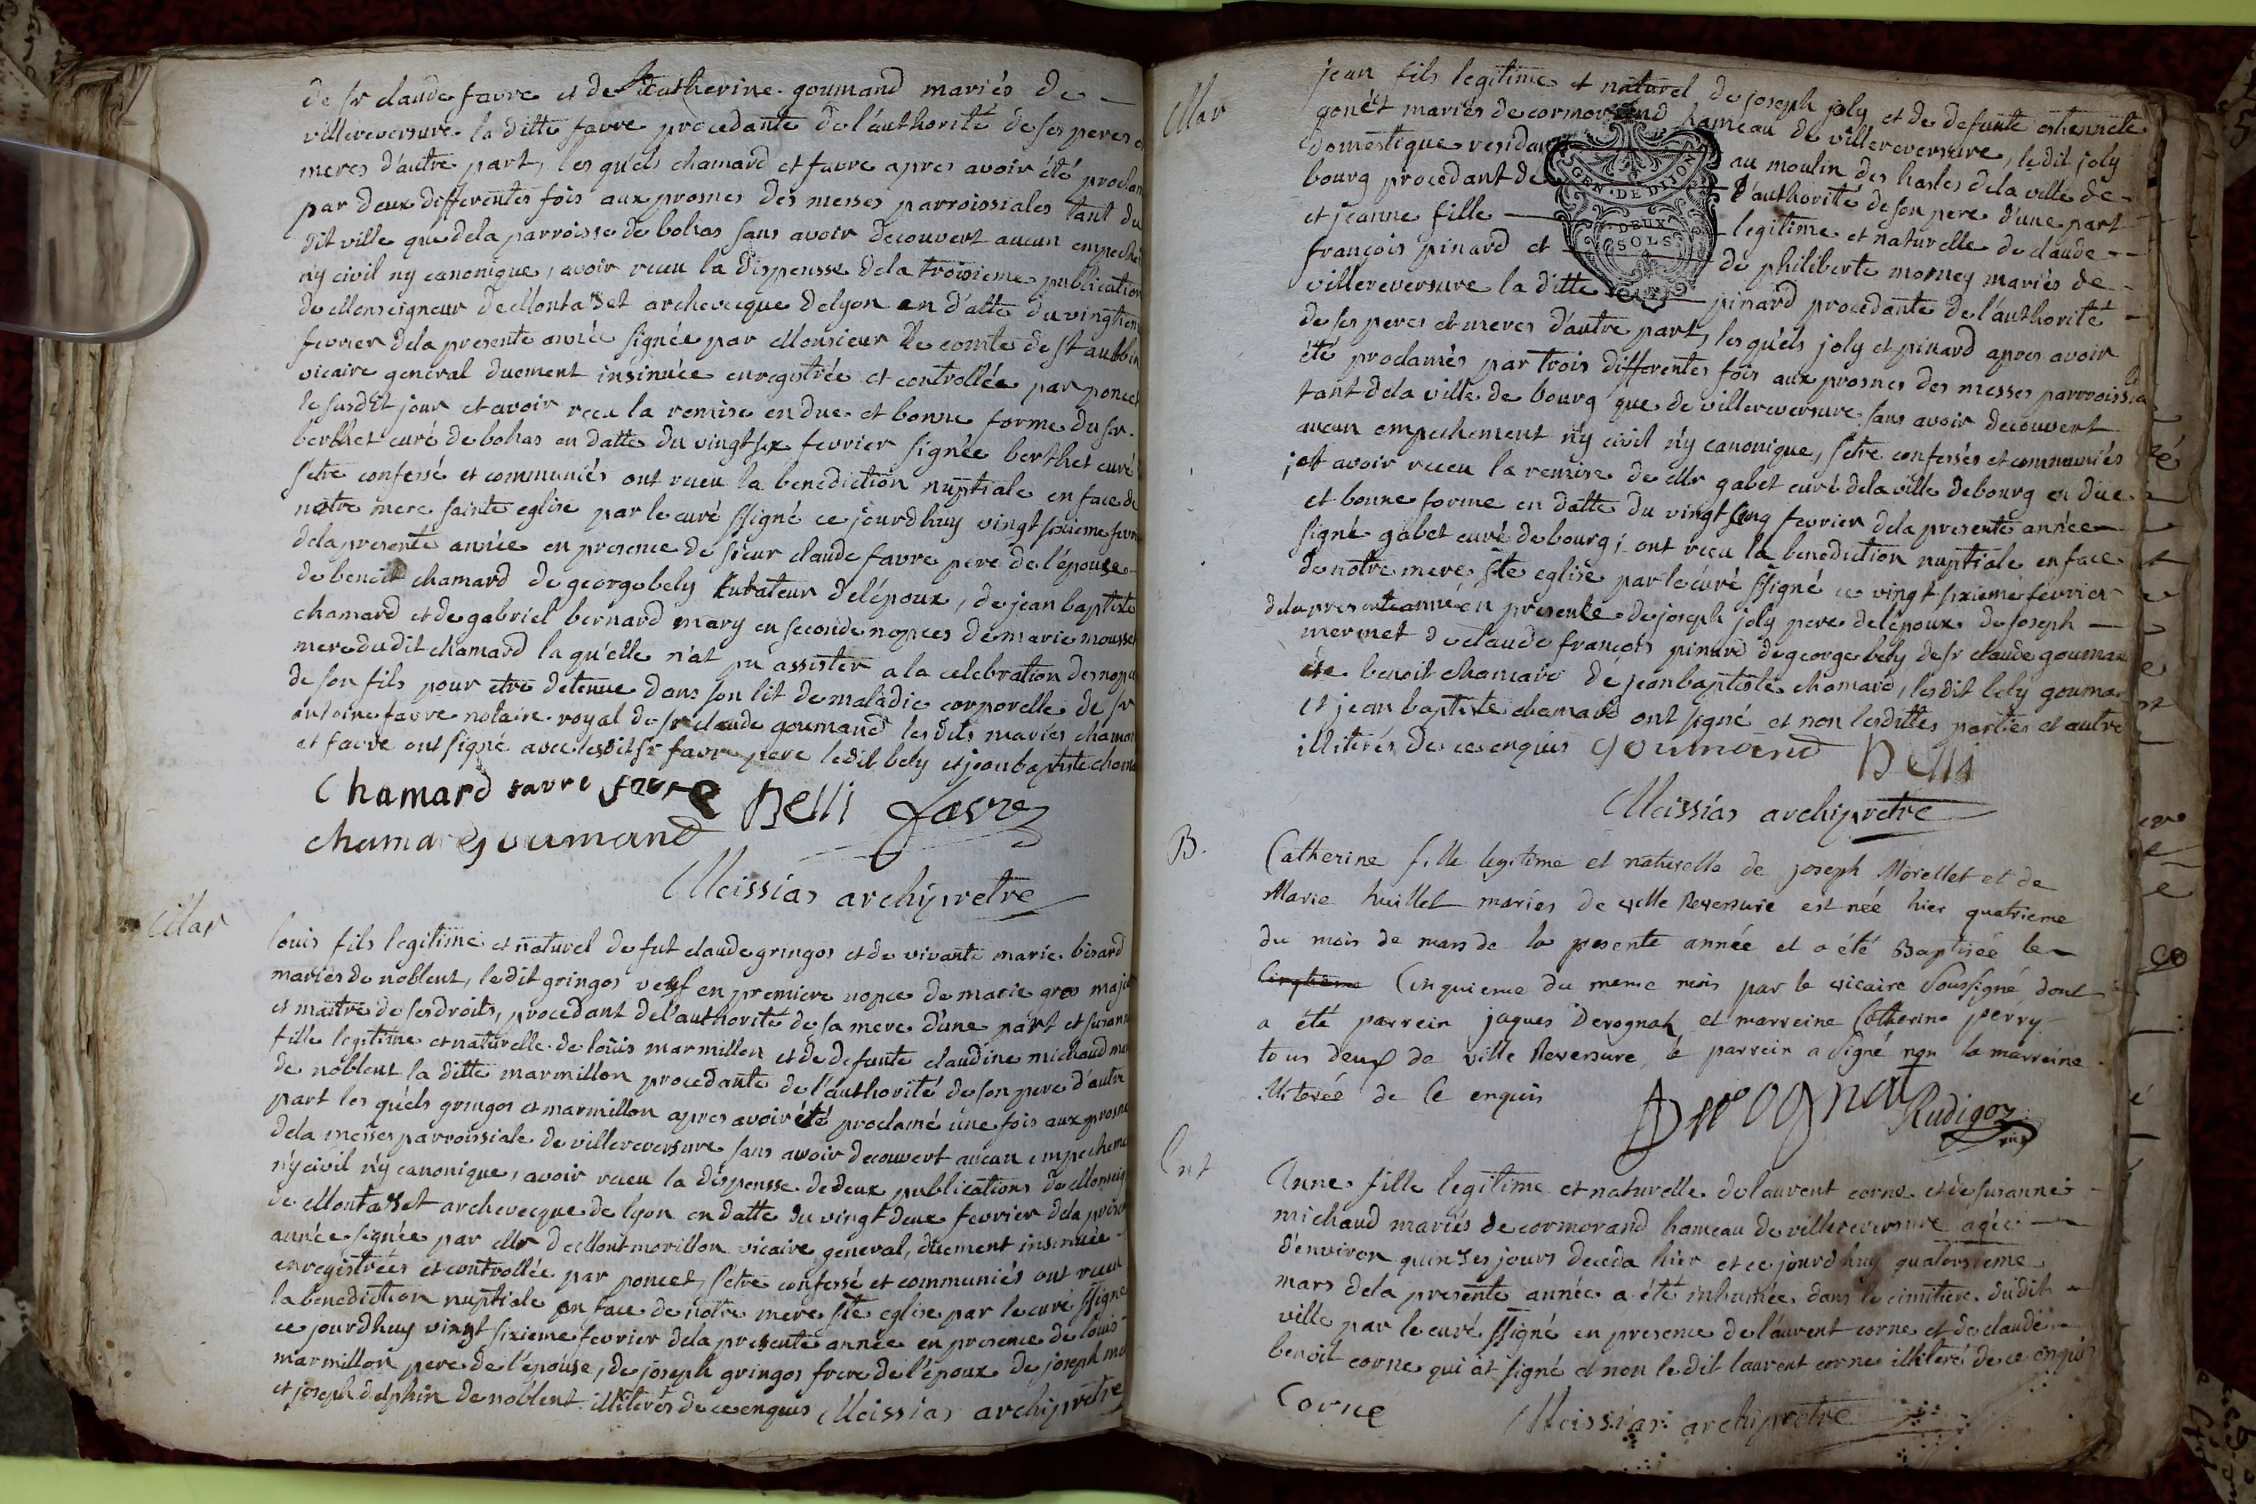 de sr claude favre et de Catherine goumand mariés de
villereversure la ditte favre procedante de l'authorité de ses peres et
meres d'autre part, les quels chamard et favre apres avoir été proclam
par deux differentes fois aux prosnes des messes parroissiales tant du
dit ville que dela parroisse de bohas sans avoir decouvert aucun empeche
ny civil ny canonique, avoir receu la dispensse dela troisieme publication
de Monseigneur de Montaset archevecque de lyon en d'atte du vingtiem
fevrier dela presente année signée par Monsieur le comte de st aubin
vicaire general duement insinuée enregistrée et controllée par poncet
le susdit jour et avoir receu la remise en due et bonne forme du sr
berthet curé de bohas en datte du vingt six fevrier signée berthet curé
s'etre confessé et communiés ont receu la benediction nuptiale en face de
notre mere sainte eglise par le curé ssigné ce jourdhuy vingt sixieme fevri
dela presente année en presence de sieur claude favre pere de l'épouse
de benoit chamard de george bely curateur de l'époux, de jean baptiste
chamard et de gabriel bernard mary en seconde nopces de marie mousset
mere dudit chamard la qu'elle n'at pu assister a la celebration des nopce
de son fils pour etre detenue dans son lit de maladie corporelle de sr
antoine favre notaire royal de sr claude goumand les dits mariés chamar
et favre ont signé avec lesdits sr favre pere ledit bely et jean baptiste chama
Chamard favre favre Belli favre
chamar goumand
Meissias archiprètre
Mar
louis fils legitime et naturel de fut claude gringos et de vivante marie bisard
mariés de noblent, ledit gringos veuf en premiere nopce de marie gros majeur
et maitre de ses droits, procedant de l'authorité de sa mere d'une part et susanne
fille legitime et naturelle de louis marmillon et de defunte claudine michaud mar
de noblent la ditte marmillon procedante de l'authorité de son pere d'autre
part les quels gringos et marmillon apres avoir été proclamé une fois aux prosne
dela messes parroissiale de villereversure sans avoir decouvert aucun empecheme
n'y civil n'y canonique, avoir receu la dispensse de deux publications de Monseig
de Montaset archevecque de lyon en datte du vingt deux fevrier dela prése
année signée par Mr de Montmorillon vicaire general, duement insinuée
enregistrées et controllée par poncet, s'etre confessé et communiés ont receu
la benediction nuptiale en face de notre mere ste eglise par le curé ssigné
ce jourdhuy vingt sixieme fevrier dela presente année en presence de louis
marmillon pere de l'épouse, de joseph gringos frere de l'époux de joseph
et joseph delphin de noblent illiterés de ce enquis Meissias archiprètre
Mar
jean fils legitime et naturel de joseph joly et de defunte estiennette
gonét mariés de cormorand hameau de villereversure, ledit joly
domestique residant au moulin des hasles dela ville de
bourg procedant de l'authorité de son pere d'une part
et jeanne fille legitime et naturelle de claude
françois pinard et de philiberte morney mariés de
villereversure la ditte pinard procedante de l'authorité
de ses peres et meres d'autre part, les quels joly et pinard apres avoir
été proclamés par trois differentes fois aux prosnes des messes parroissia
tant dela ville de bourg que de villereversure sans avoir decouvert
aucun empechement n'y civil n'y canonique, s'etre confessés et communiés
et avoir receu la remise de Mr gabet curé dela ville de bourg en due
et bonne forme en datte du vingt cinq fevrier dela presente année
signé gabet curé de bourg; ont receu la benediction nuptiale en face
de notre mere ste eglise par le curé ssigné ce vingt sixieme fevrier
dela presente année en presence de joseph joly pere de l'époux de joseph
mermet de claude françois pinard de george bely de sr claude gouman
de benoit chamard de jean baptiste chamard, lesdit bely gouman
et jean baptiste chamard ont signé et non lesdittes parties et autre
illiterés de ce enquis goumand Belli
Meissias archiprètre
GEN. DE DIJON
DEUX
SOLS
B.
Catherine fille legitime et naturelle de joseph Morellet et de
Marie huillet mariés de ville Reversure est née hier quatrieme
du mois de mars de la presente année et a été Baptisée le
Cinquieme Cinquieme du meme mois par le vicaire soussigné, dont
a été parrein jaques Derognat et marreine Catherine perry
tous deux de ville Reversure, le parrein a signé non la marreine
illiterée de Ce enquis
Derognat Rudigoz vic
Ent
Anne fille legitime et naturelle de laurent corne et de susanne
michaud mariés de cormorand hameau de villereversure agée
d'environ quinses jours deceda hier et ce jourdhuy quatorsieme
mars dela presente année a été inhumée dans le cimitiere dudit
ville par le curé ssigné en presence de laurent corne et de claude
benoit corne qui at signé et non le dit laurent corne illiteré de ce enquis
Corne Meissias archiprètre